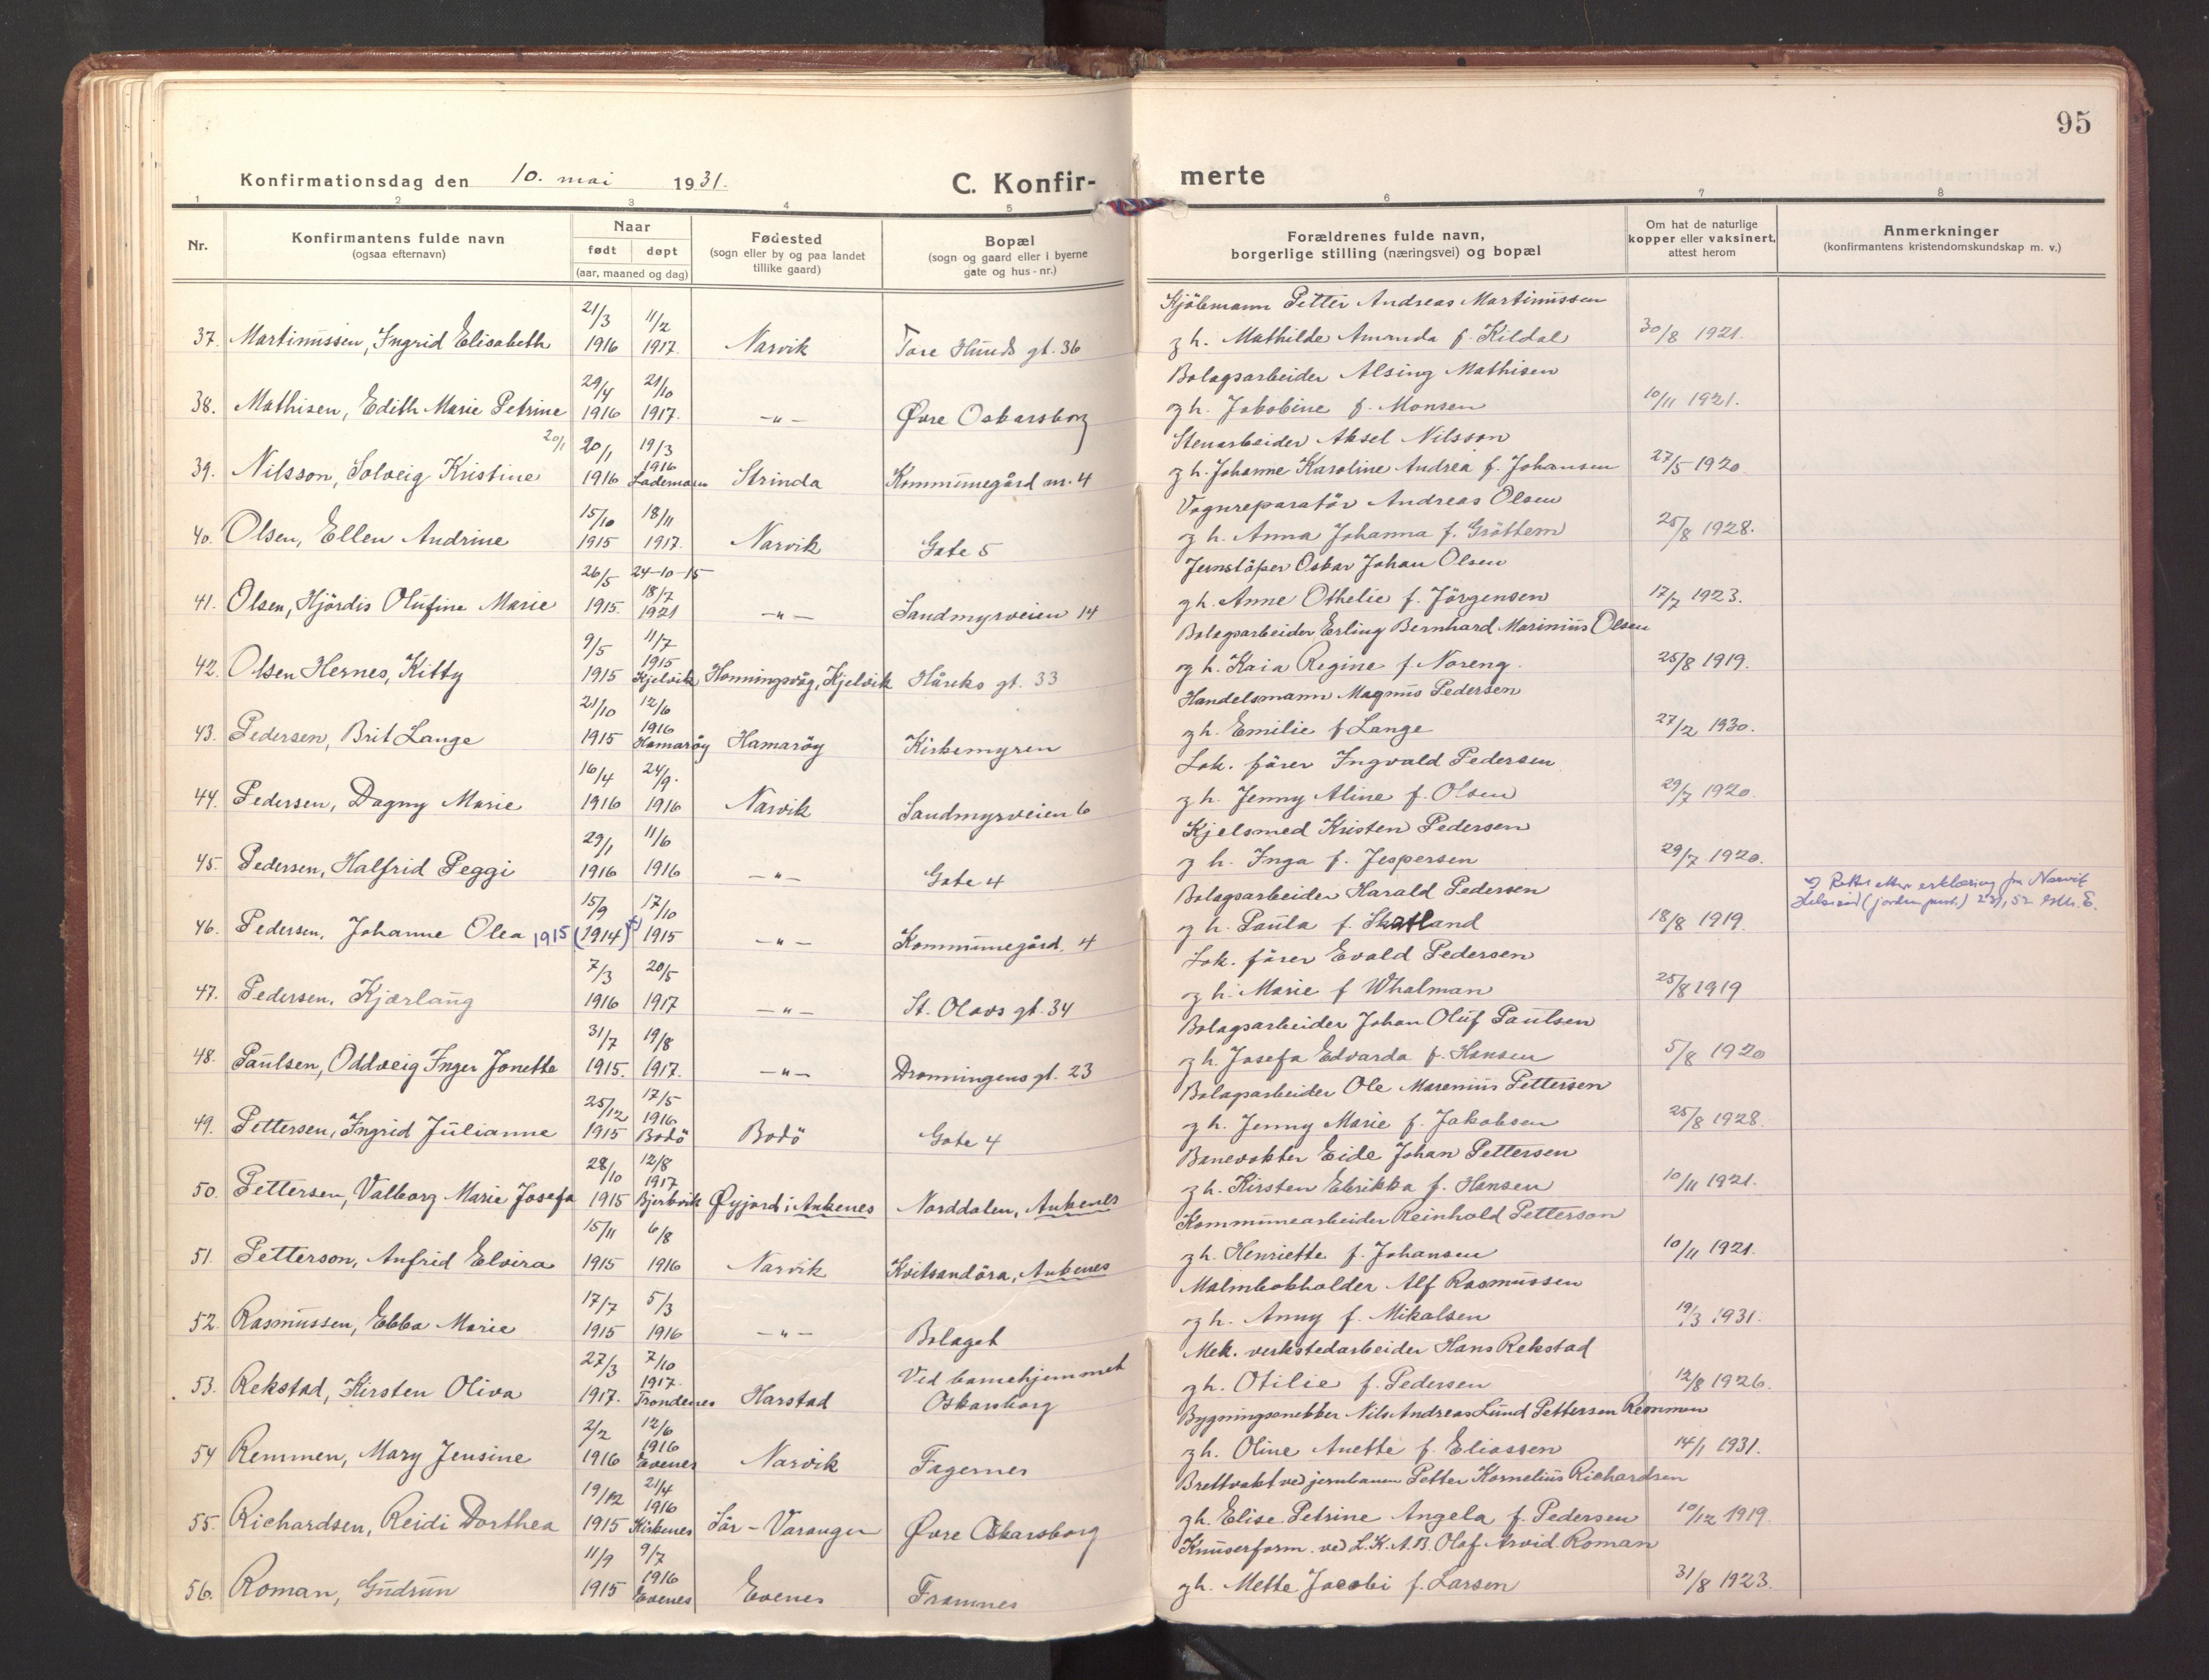 95
Konfirmationsdag den 10. mai 1931.
C. Konfir-merte
1 2 3 4 5 6 7 8
Nr.
Konfirmantens fulde navn
(ogsaa efternavn)
Naar
født døpt
(aar, maaned og dag)
Fødested
(sogn eller by og paa landet
tillike gaard)
Bopæl
(sogn og gaard eller i byerne
gate og hus-nr.)
Forældrenes fulde navn,
borgerlige stilling (næringsvei) og bopæl
Om hat de naturlige
kopper eller vaksinert,
attest herom
Anmerkninger
(konfirmantens kristendomskundskap m. v.)
21/3 11/2 Kjöbmann Petter Andreas Martinussen
37. Martinussen, Ingrid Elisabeth 1916 1917. Narvik Tore Hunds gt. 36 og h. Mathilde Amanda f. Kildal 30/8 1921.
29/4 21/10 Bolagsarbeider Alsing Mathisen
38. Mathisen, Edith Marie Petrine 1916 1917. —"— Øvre Oskarsborg og h. Jakobine f. Monsen 10/11 1921.
20/1 20/1 19/3 Stenarbeider Aksel Nilsson
1916
39. Nilsson, Solveig Kristine 1916 Lademoen Strinda Kommunegård nr. 4 og h. Johanne Karoline Andrea f. Johansen 27/5 1920
15/10 18/11 Vognreparatör Andreas Olsen
40. Olsen, Ellen Andrine 1915 1917. Narvik Gate 5 og h. Anna Johanna f. Gröttem 25/8 1928.
26/5 24-10-15 Jernstöper Oskar Johan Olsen
18/7
41. Olsen, Hjördis Olufine Marie 1915. 1921 —"— Sandmyrveien 14 og h. Anne Othelie f. Jörgensen 17/7 1923.
9/5 11/7 Bolagsarbeider Erling Bernhard Marinius Olsen
1915
42. Olsen Hernes, Kitty 1915 Kjelvik Honningsvåg, Kjelvik Håreks gt. 33 og h. Kaia Regine f. Noreng. 25/8 1919.
21/10 12/6 Handelsmann Magnus Pedersen
1916
43. Pedersen, Brit Lange 1915 Hamaröy Hamaröy Kirkemyren og h. Emilie f Lange 27/2 1930.
16/4 24/9. Lok. förer Ingvald Pedersen
44. Pedersen, Dagny Marie 1916 1916 Narvik Sandmyrveien 6 og h. Jenny Aline f. Olsen 29/7 1920.
29/1 11/6 Kjelsmed Kristen Pedersen
45. Pedersen, Halfrid Peggi 1916 1916 —"— Gate 4 og h. Inga f. Jespersen 29/7 1920.
15/9 17/10 Bolagsarbeider Harald Pedersen
46. Pedersen, Johanne Olea 1915 (1914) +) 1915 —"— Kommunegård. 4 og h. Paula f. Skatland 18/8 1919.
+) Rettet etter erklæring fra Narvik
7/3 20/5 Lok. förer Evald Pedersen
47. Pedersen, Kjærlaug 1916 1917 —"— St. Olavs gt. 34 og h. Marie f Whalman 25/8 1919
31/7 19/8 Bolagsarbeider Johan Oluf Paulsen
48. Paulsen, Oddveig Inger Jonette 1915. 1917. —"— Dronningens gt. 23 og h. Josefa Edvarda f. Hansen 5/8 1920
25/12 17/5 Bolagsarbeider Ole Marenius Pettersen
1916
49. Pettersen, Ingrid Julianne 1915 Bodö Bodö Gate 4 og h. Jenny Marie f. Jakobsen 25/8 1928.
28/10 12/8 Banevokter Eide Johan Pettersen
1917
50. Pettersen, Valborg Marie Josefa 1915 Bjerkvik Øyjord i Ankenes Norddalen, Ankenes og h. Kirsten Elrikka f. Hansen 10/11 1921.
15/11 6/8 Kommunearbeider Reinhold Petterson
51. Petterson, Anfrid Elvira 1915 1916 Narvik Kvitsandöra, Ankenes og h. Henriette f. Johansen 10/11 1921.
17/7 5/3 Malmbokholder Alf Rasmussen
52. Rasmussen, Ebba Marie 1915 1916 —"— Bolaget og h. Anny f. Mikalsen 19/3 1931.
27/3 7/10 Ved barnehjemmet Mek. verkstedarbeider Hans Rekstad
1917.
53. Rekstad, Kirsten Oliva 1917. Trondenes Harstad Oskarsborg og h. Otilie f. Pedersen 12/8 1926.
2/2 12/6 Bygningssnekker Nils Andreas Lund Pettersen Remmen
1916
54 Remmen, Mary Jensine 1916 Evenes Narvik Fagernes og h. Oline Anette f. Eliassen 14/1 1931.
19/12 21/4 Brettvakt ved jernbanen Petter Kornelius Richardsen
1916
55. Richardsen, Reidi Dorthea 1915 Kirkenes Sör-Varanger Øvre Oskarsborg og h. Elise Petrine Angela f. Pedersen 10/12 1919.
11/9 9/7 Knuserform. ved L.K.A.B. Olof Arvid Roman
1916
56. Roman, Gudrun 1915 Evenes Evenes Framnes og h. Mette Jacobi f. Larsen 31/8 1923.